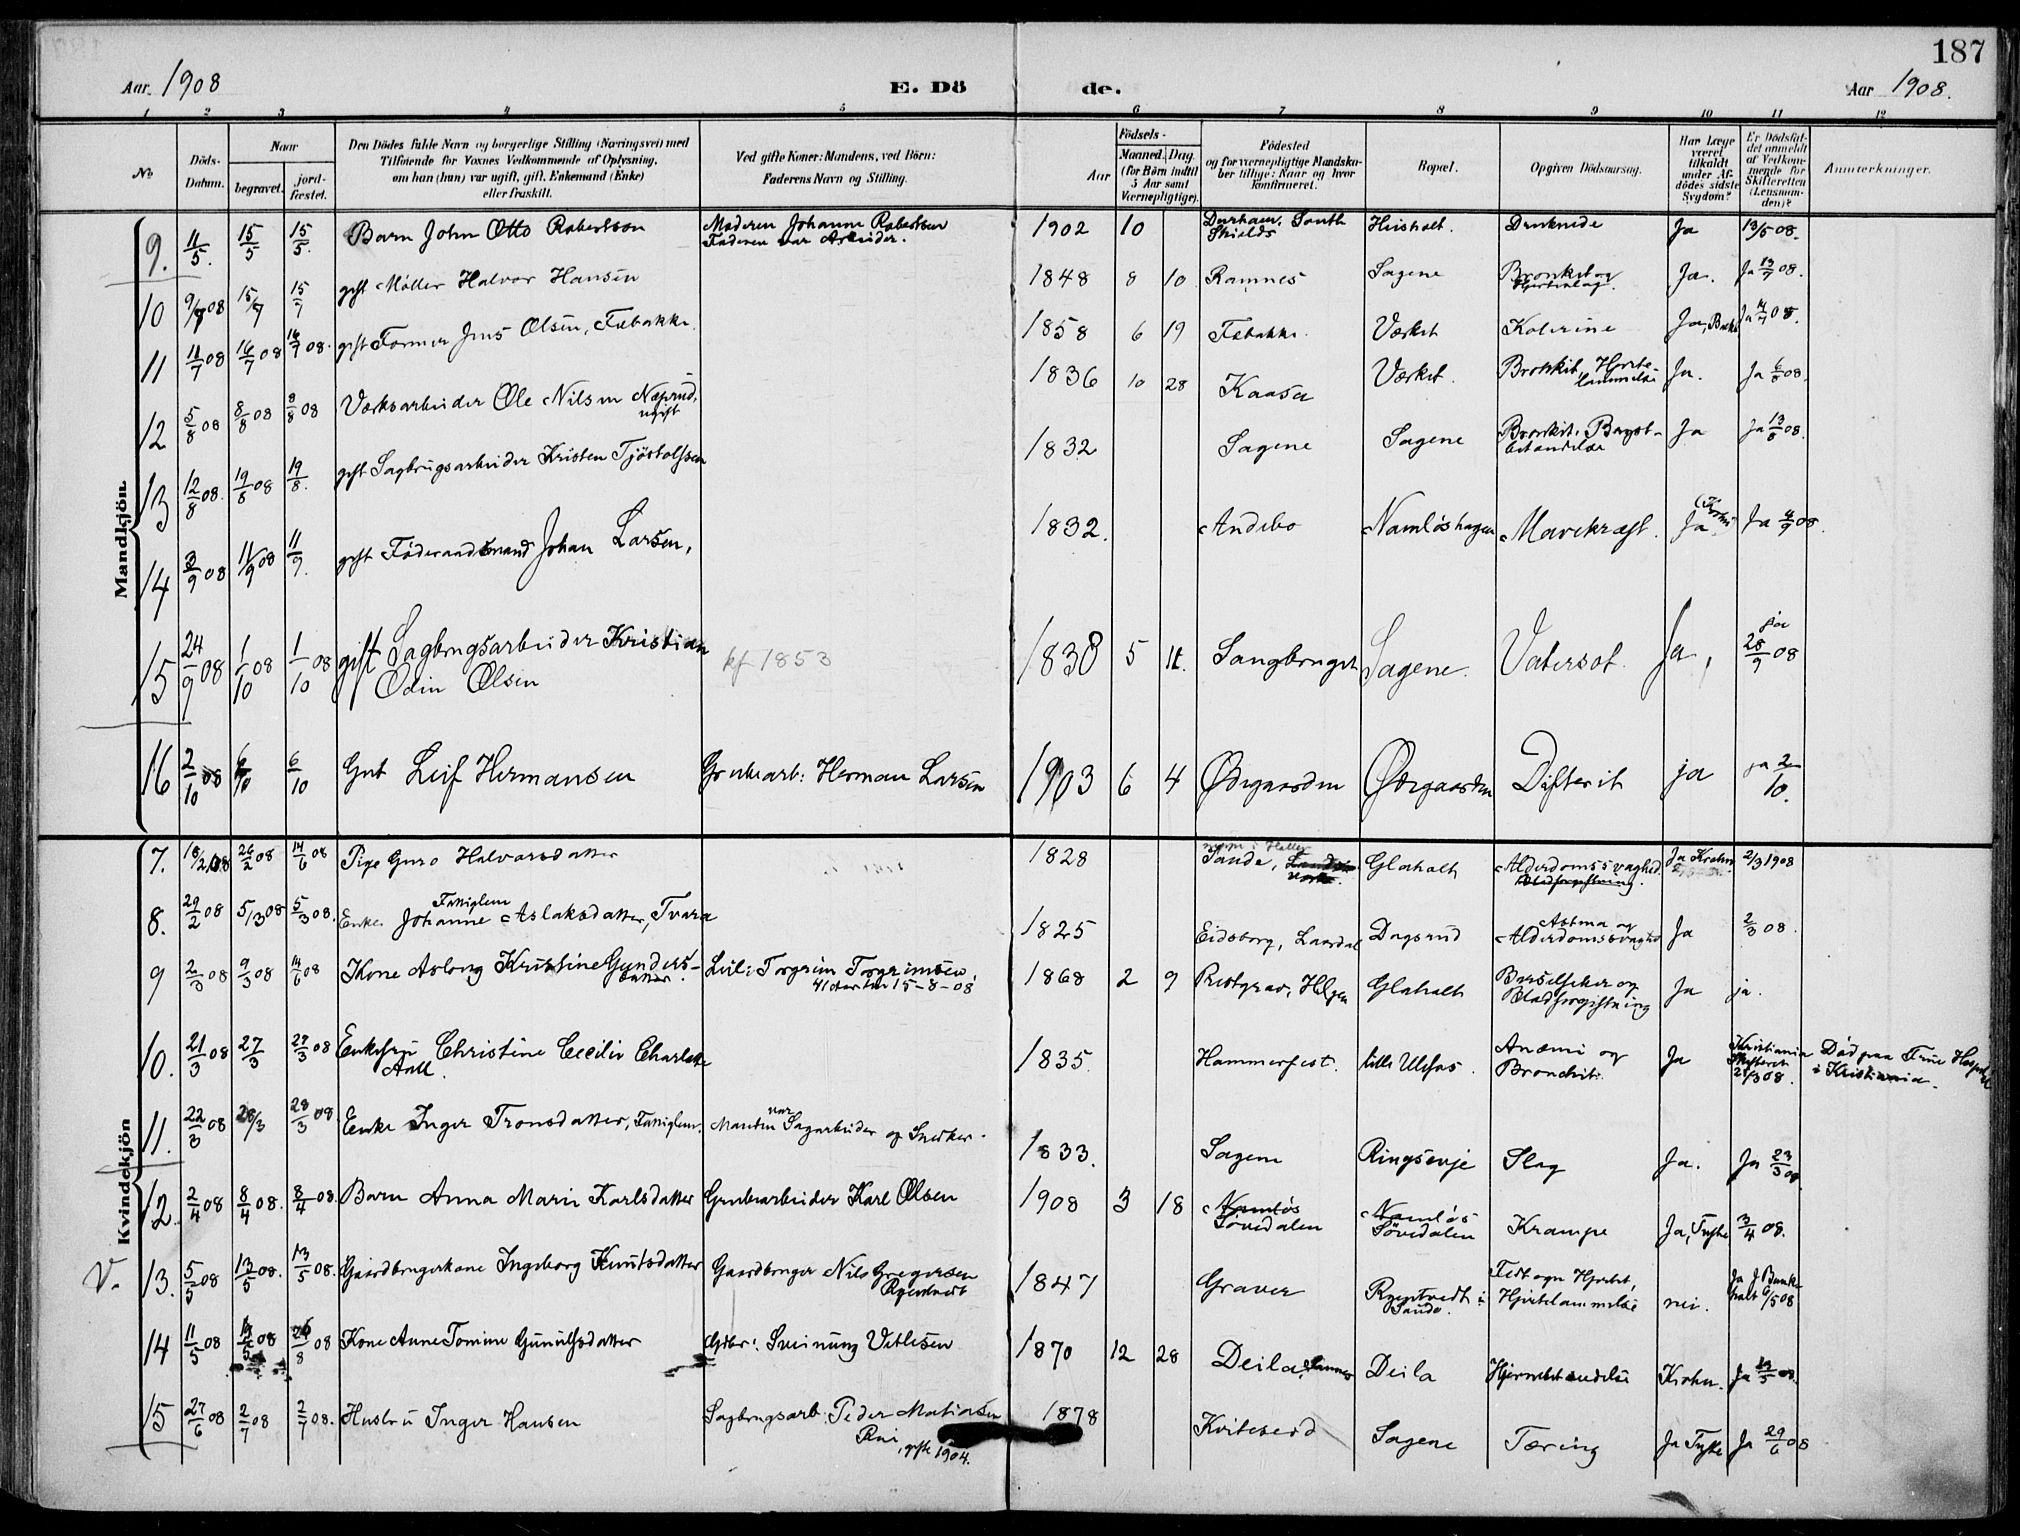 187
Aar 1908
E. Dö
de.
Aar 1908.
1 2 3 4 5 6 7 8 9 10 11 12
No
Döds-Datum.
Naar
begravet.
jord-fæstet.
Den Dödes fulde Navn og borgerlige Stilling (Næringsvei) med
Tilföiende for Voxnes Vedkommende af Oplysning,
om han (hun) var ugift, gift, Enkemand (Enke)
eller fraskilt.
Ved gifte Koner: Mandens, ved Börn:
Faderens Navn og Stilling.
Födsels-
Aar
Maaned. Dag.
(for Börn indtil
5 Aar samt
Værnepligtige).
Födested
og for værnepligtige Mandska-
ber tillige: Naar og hvor
konfirmeret.
Bopæl.
Opgiven Dödsaarsag.
Har Læge
været
tilkaldt
under Af-
dödes sidste
Sygdom?
Er Dödsfal-
det anmeldt
af Vedkom-
mende for
Skifteretten
(Lensman-
den)?
Anmærkninger.
Mandkjön.
9. 11/5. 15/5 15/5. Barn John Otto Robertson Moderen Johanne Robertsen 1902 10 Durham, South Heisholt. Druknede Ja 13/5 08.
Faderen var Arbeider. Shields
10 9/7 08 15/7 15/7 gift Møller Halvor Hansen 1848 8 10 Ramnes Sagene Bronkit og Ja. Ja 13/7 08.
Hjerteslag.
11 11/7 08 16/7 08 16/7 08. gift Former Jens Olsen, Fæbakke. 1858 6 19 Fæbakke. Værket Kolerine Ja, Ja 14/7 08.
12 5/8 08 8/8 08 8/8 08 Værksarbeider Ole Nilsen Næprud, 1836 10 28 Kaasa Værket. Bronkit, Hjerte- Ja. Ja 6/8 08.
ugift lammelse
13 12/8 08. 19/8 08 19/8. gift Sagbrugsarbeider Kristen Tjöstolfsen 1832 Sagene Sagene Bronkit. Bryst- Ja Ja 13/8 08.
betændelse
14 3/9 08 11/9 08 11/9. gift Föderaadsmand Johan Larsen, 1832. Andebo Namløshagen Mavekræft. Ja Ja 4/9 08.
15 24/9 08 1/10 08 1/10 08 gift Sagbrugsarbeider Kristian kf 1853 1838 5 11. Sagene. Vatersot. Ja, ja 28/9 08
Odin Olsen
16 2/10 08 6/10 6/10 Gut Leif Hermansen Grubearb: Herman Larsen 1903 6 4 Ødegaarden Ødegaarden Difterit ja ja 2/10.
Kvindekjön
7. 18/2 08 26/2 08 14/6 08 Pige Guro Halvorsdatter 1828 Sande, Glaholt Alderdomssvaghed Ja Krohn 2/3 1908
Blodforgiftning.
8. 29/2 08 5/3 08 5/3 08. Enke Fattiglem Johanne Aslaksdatter, Tvara 1825 Eidsborg, Laardal Dagsrud Astma og Ja 2/3 08.
Alderdomssvaghed
9 2/3 08 9/3 08 14/6 08 Kone Aslaug Kristine Gunders- Leil: Torgrim Torgrimsen, 1868 2 9 Prestgrav, Helgen Glaholt Barselfeber og Ja ja.
datter. 41 aar den 15-8-08. Blodforgiftning
10. 21/3 08 27/3 27/3 08 Enkefru Christine Cecilie Charlotte 1835. Hammerfest. lille Ulefos. Anæmi og Ja Kristiania Død paa Frue Hospital
Aall. Bronchit. Skifteret 28/3 08. i Kristiania.
11. 22/3 08 28/3 28/3 08. Enke Inger Tronsdatter, Fattiglem. Manden var Sagarbeider og Snedker. 1833. Sagene Ringsevje Slag Ja. Ja 23/3 08.
12. 2/4 08 8/4 08. 8/4 08. Barn Anna Marie Karlsdatter Grubearbeider Karl Olsen 1908 3 18 Namløs Namløs Krampe Ja, Tufte 3/4 08.
Sövedalen Sövedalen
V. 13. 5/5 08 13/5 08. 13/5 08. Gaardbrugerkone Ingeborg Knutsdatter Gaardbruger Nils Gregersen 1847 Graver Ryentvedt i Fedt ogn Hjertet, nei. Ja J Bunke
Ryentvedt Sande. Hjertelammelse halt 6/5 08
14 11/5 08 19/5 08 26/8 08 Kone Anne Tomine Gunulfsdatter Gdbr: Sveinung Vetlesen 1870 12 28 Deila, Deila Hjernebetændelse Krohn. Ja 12/5 08.
15 27/6 08 2/7 08 2/7 08. Hustru Inger Hansen Sagbrugsarb. Peder Matiasen 1878 Kviteseid Sagene Tæring Ja Tufte Ja 29/6 08
gift 1904.